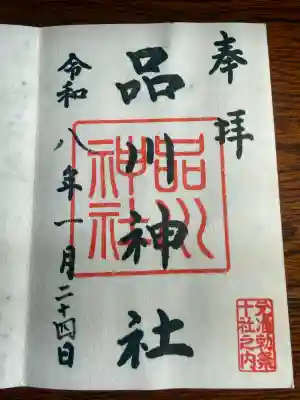 奉拝
品川神社
令和八年一月二十四日
品川神社
准勅祭
十社之内